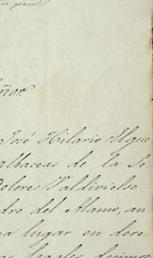 ñor.
José Hilario Elgue
albaceas de la Se
Dolores Valdivielso
dro del Alamo, an
lugar en dere